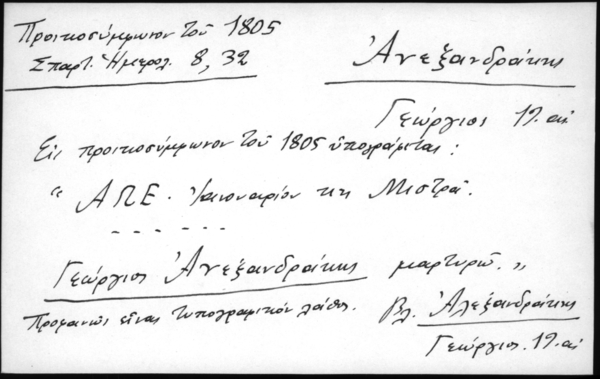 Προικοσύμφωνον τοῦ 1805
Σπαρτ. Ἡμερολ. 8, 32
Ἀνεξανδράκης
Γεώργιος 19. αἰ
Εἰς προικοσύμφωνον τοῦ 1805 ὑπογράφεται:
“ ΑΩΕ. Ἰαννουαρίου κκ Μιστρᾶ.
- - - - - -
Γεώργιος Ἀνεξανδράκης μαρτυρῶ. „
Προφανῶς εἶναι τυπογραφικόν λάθος.
Βλ. Ἀλεξανδράκης
Γεώργιος. 19. αἰ